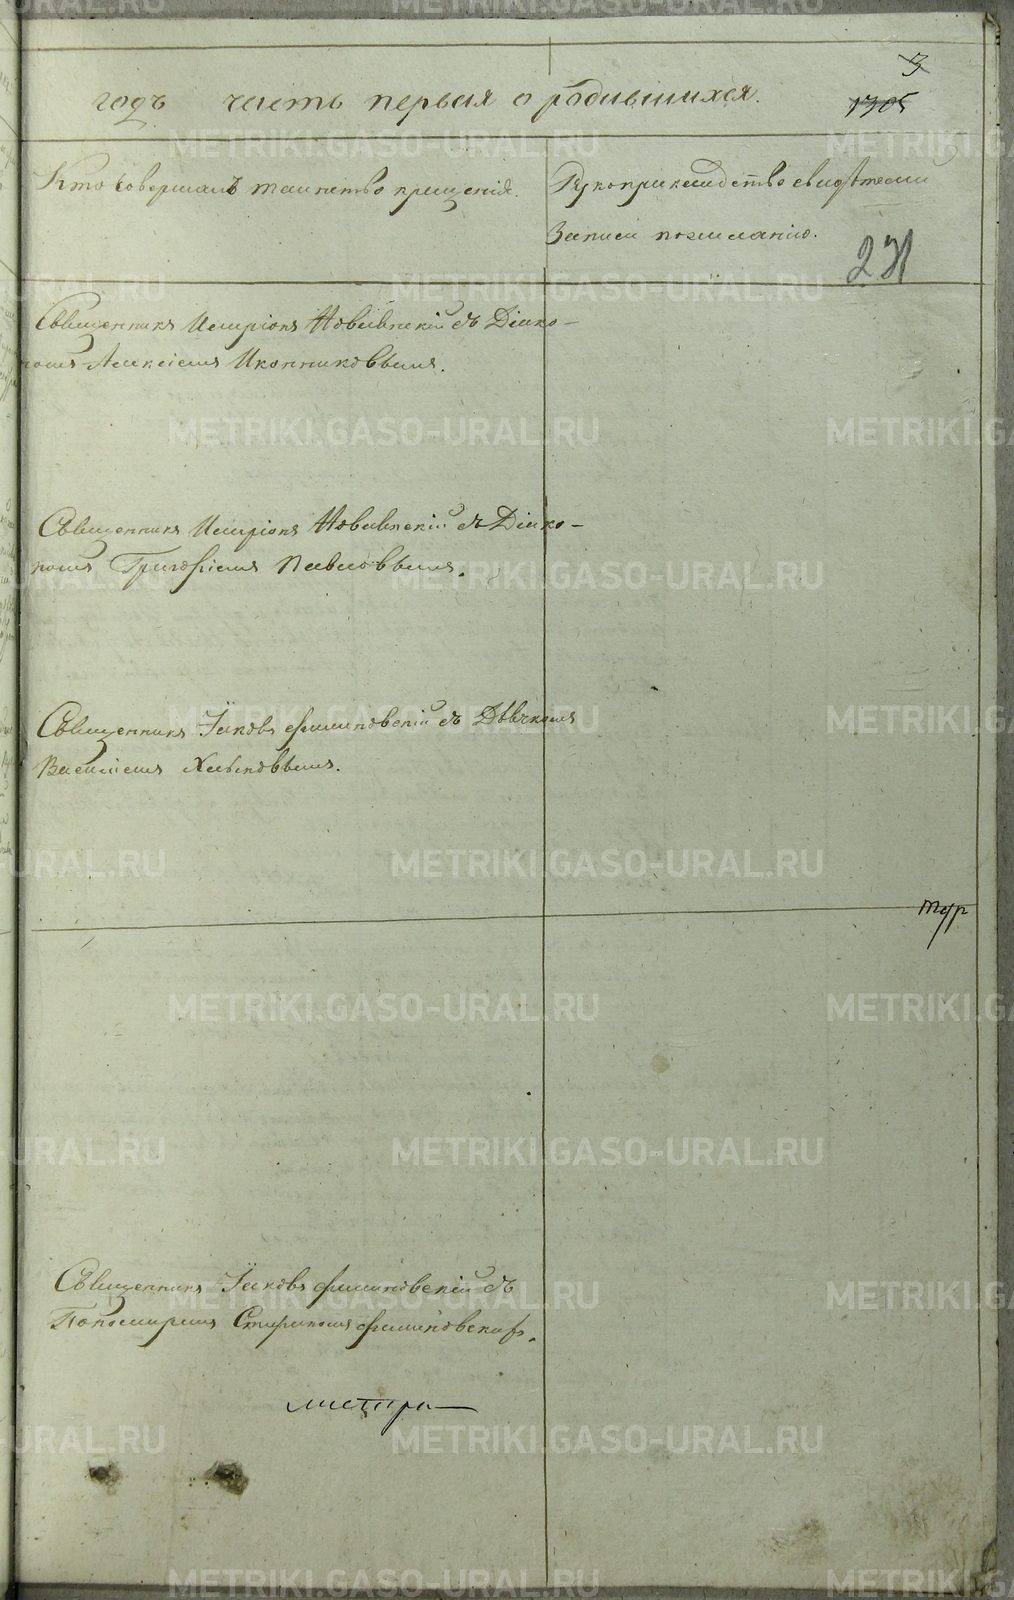 3
годъ часть первая о родившихся.
1305
Кто совершалъ таинство крещенія.
Рукоприкладство свидѣтелей
записи по желанію.
231
Священникъ Иларіонъ Новавинскій съ Діако-
номъ Алексіемъ Иконниковымъ.
Священникъ Иларіонъ Новавинскій съ Діако-
номъ Григоріемъ Павловымъ.
Священникъ Іаковъ Филиповскій съ Дьячкомъ
Василіемъ Хлыновымъ.
Священникъ Іаковъ Филиповскій съ
Пономаремъ Филиповскимъ.
METRIKI.GASO-URAL.RU